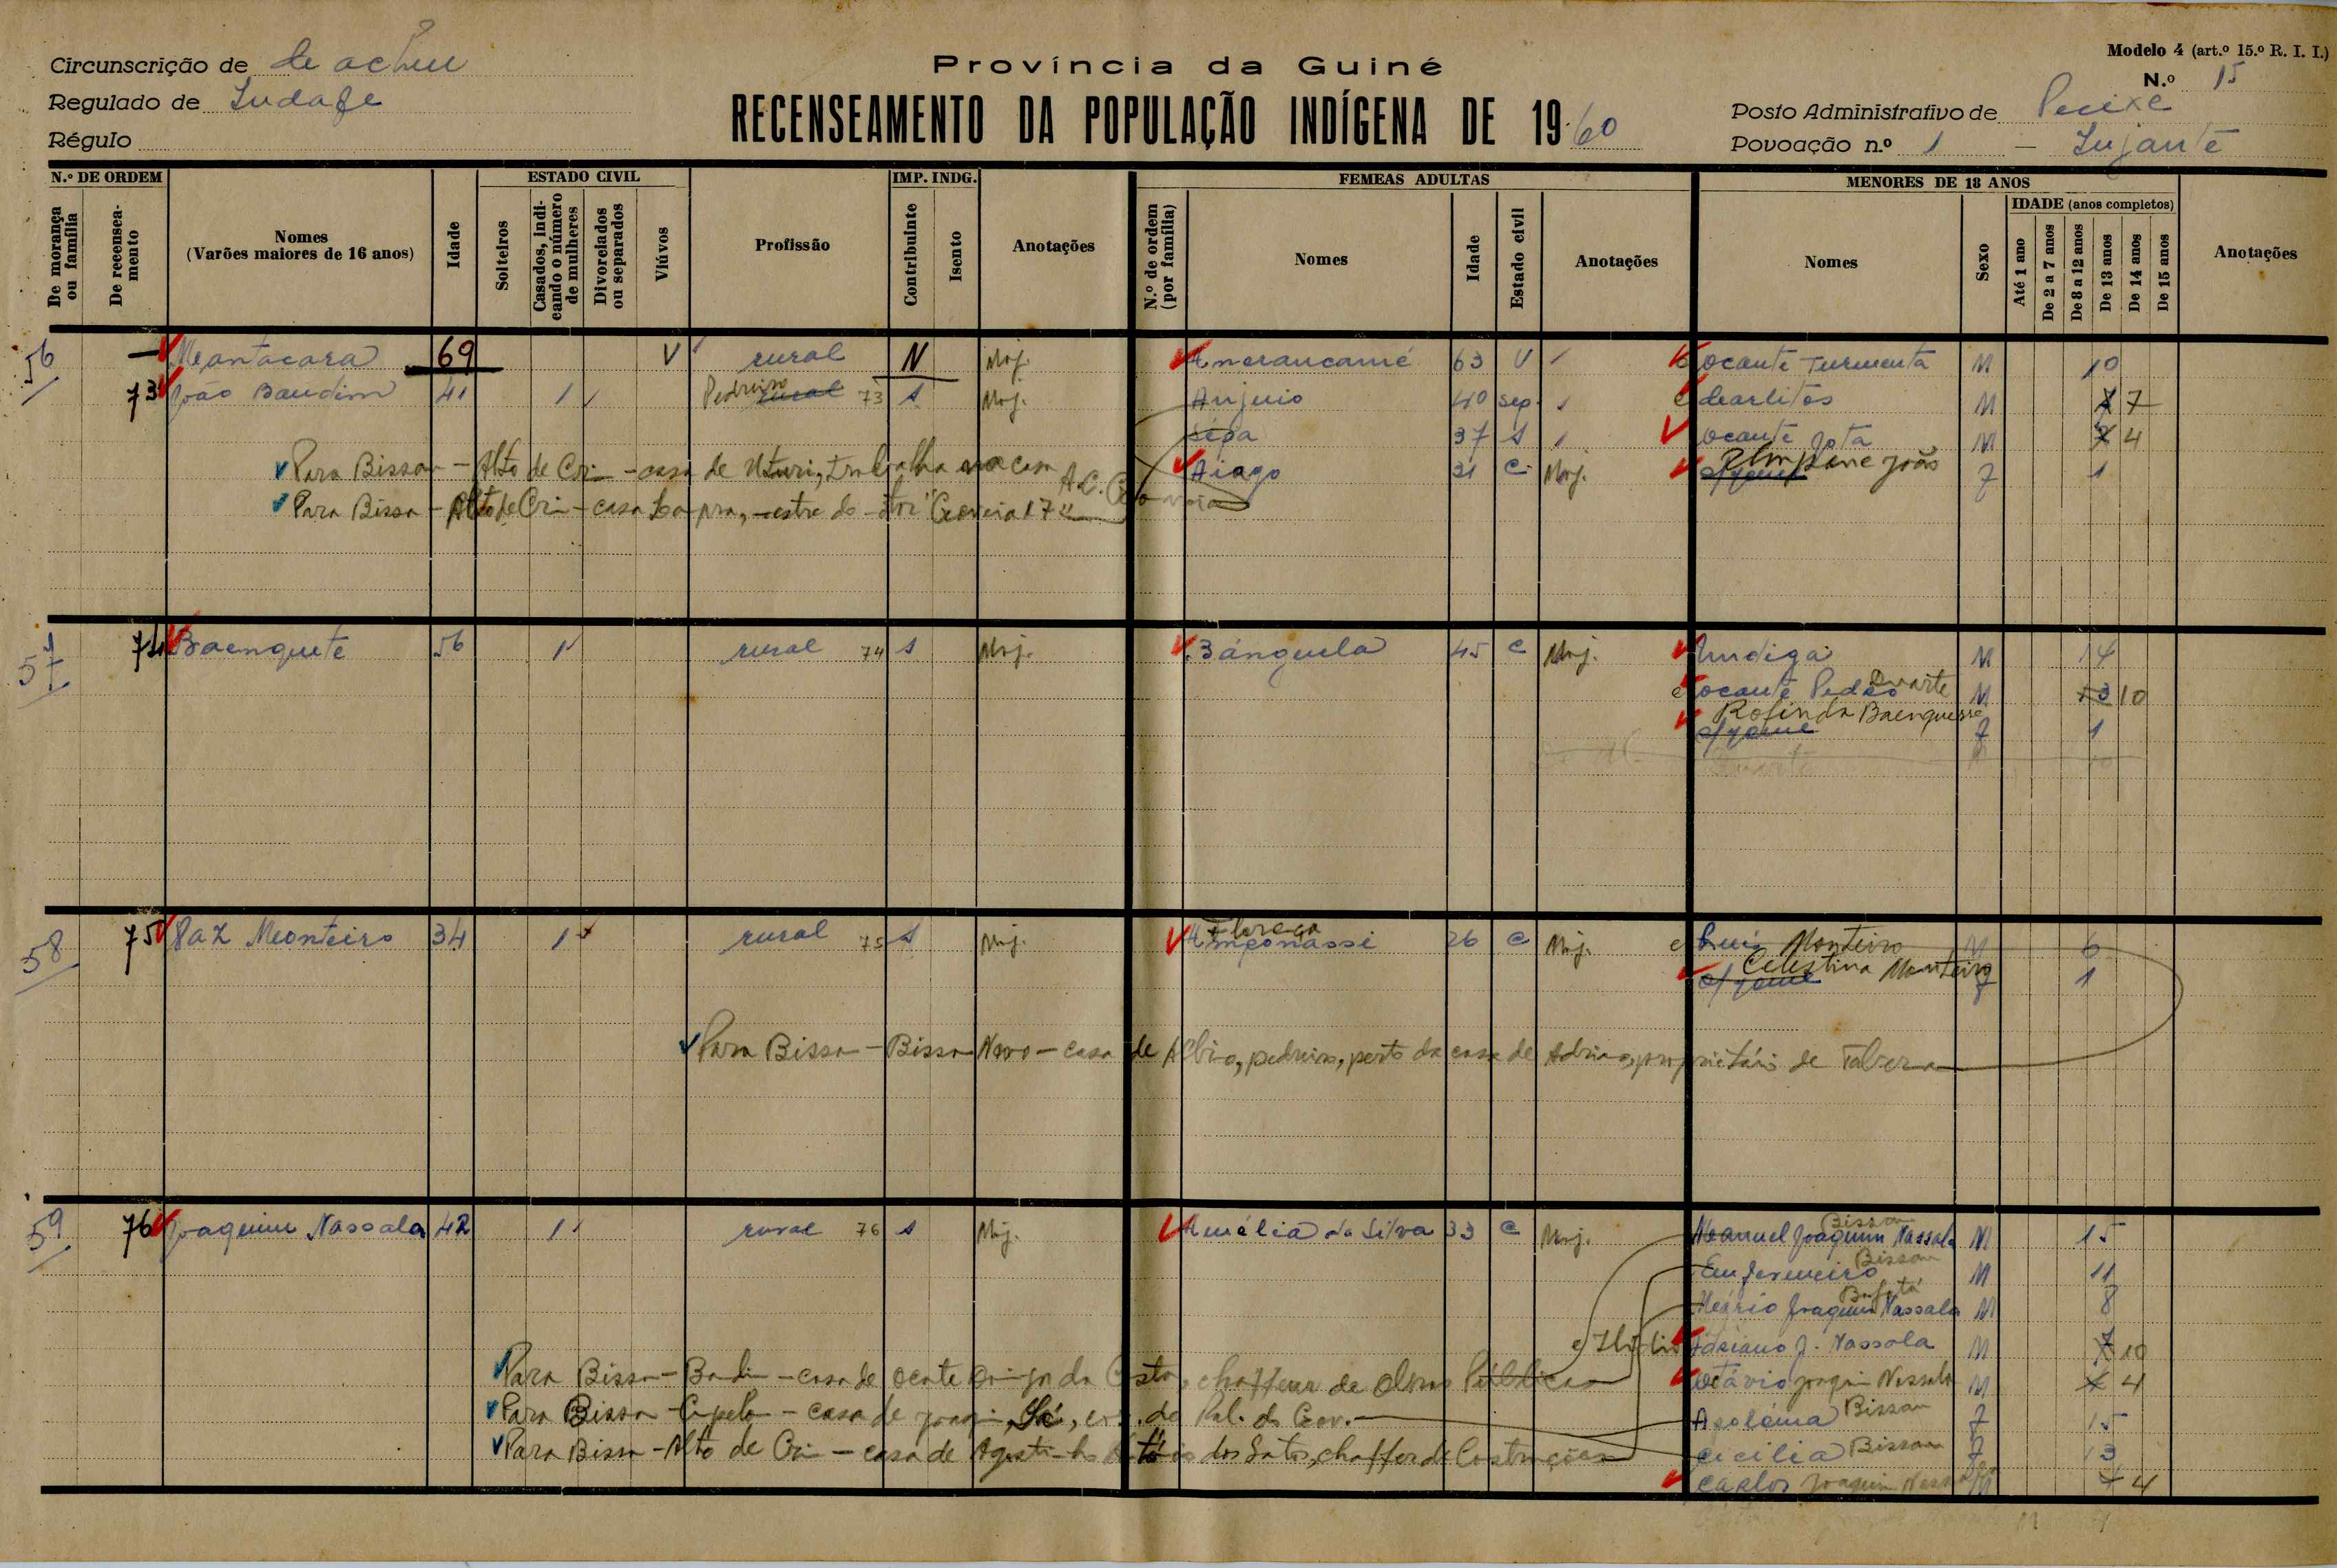 Modelo 4 (art.º 15.º R. I. I.)
Província da Guiné
N.º 15
Circunscrição de
Regulado de
Régulo
RECENSEAMENTO DA POPULAÇÃO INDÍGENA DE 1960
Posto Administrativo de Pecixe
Povoação n.º 1 —
N.º DE ORDEM
De morança ou família
De recenseamento
Nomes
(Varões maiores de 16 anos)
Idade
ESTADO CIVIL
Solteiros
Casados, indicando o número de mulheres
Divorciados ou separados
Viúvos
Profissão
IMP. INDG.
Contribuinte
Isento
Anotações
FEMEAS ADULTAS
N.º de ordem (por família)
Nomes
Idade
Estado civil
Anotações
MENORES DE 18 ANOS
Nomes
Sexo
IDADE (anos completos)
Até 1 ano
De 2 a 7 anos
De 8 a 12 anos
De 13 anos
De 14 anos
De 15 anos
Anotações
56 — Mantacara 69 V rural N Manj. 63 V Ocante M 10
73 João Baudim 41 1 Pedreiro rural 73 S Manj. Anjuio 40 sep. Carlitos M 7
Sépa 37 S Ocante Jota M 4
Aiago 21 C Manj. João s/ nome F 1
Para Bissau - Alto de Crim - casa de
Para Bissau - Alto de Crim - casa
57 74 Baenquete 56 1 rural 74 S Manj. Bánguela 45 C Manj. M 14
Ocante Pedro Duarte M 13 10
Rofinda Baenquesse s/ nome F 1
58 75 Paz Monteiro 34 1 rural 75 S Manj. 26 C Manj. Luis Monteiro M 6
Celestina Monteiro s/ nome F 1
Para Bissau - Bissau Novo - casa de Albino, pedreiro, perto da casa de Adriano, proprietário de Taberna
59 76 Joaquim Nassala 42 1 rural 76 S Manj. Amélia da Silva 33 C Manj. Manuel Joaquim Nassala Bissau M 15
Enfermeiro Bissau M 11
Mário Joaquim Nassala Bafatá M 8
Adriano J. Nassola M 7 10
Para Bissau - Bandim - casa de Ocante da Costa, chaffeur de Obras Públicas
Octávio Joaquim Nassala M 4
Para Bissau - casa de Joaquim Sá, de Pal. do Gov.
Apolónia Bissau F 15
Para Bissau - Alto de Crim - casa de Agostinho António dos Santos, chaffer de Construções
Cicilia Bissau F 13
Carlos Joaquim Nassala M 4